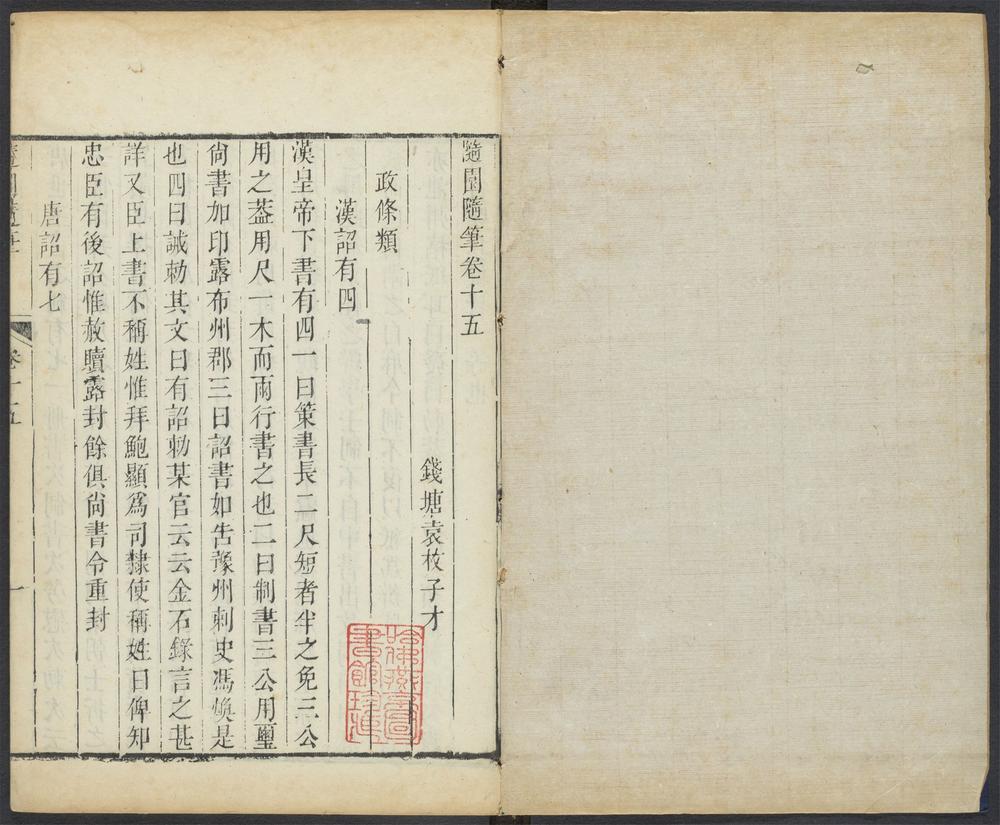 隨園隨筆卷十五
錢塘袁枚子才
政條類
漢詔有四
漢皇帝下書有四一曰策書長二尺短者半之免三公
用之葢用尺一木而兩行書之也二曰制書三公用璽
尚書加印露布州郡三曰詔書如告豫州刺史馮煥是
也四曰誡勅其文曰有詔勅某官云云金石錄言之甚
詳又臣上書不稱姓惟拜鮑顯爲司隸使稱姓曰俾知
忠臣有後詔惟赦贖露封餘俱尚書令重封
唐詔有七
隨園隨筆
卷十五
一
哈佛燕京圖書館珍藏